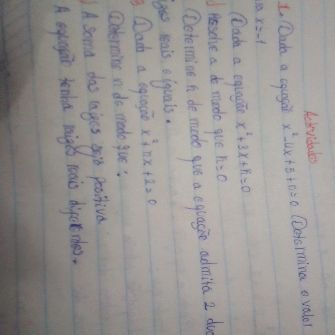 Actividades
1. Dada a equação x² 4x + 3 + n = 0 Determina o valor
x = -1
Dada a equação x² + 3x + n = 0
Resolve a de modo que n = 0
Determine n de modo que a equação admita 2
reais e iguais.
Dada a equação x² + nx + 2 = 0
Determine n de modo que:
A soma das raizes seja positiva
A equação tenha raizes reais diferentes.